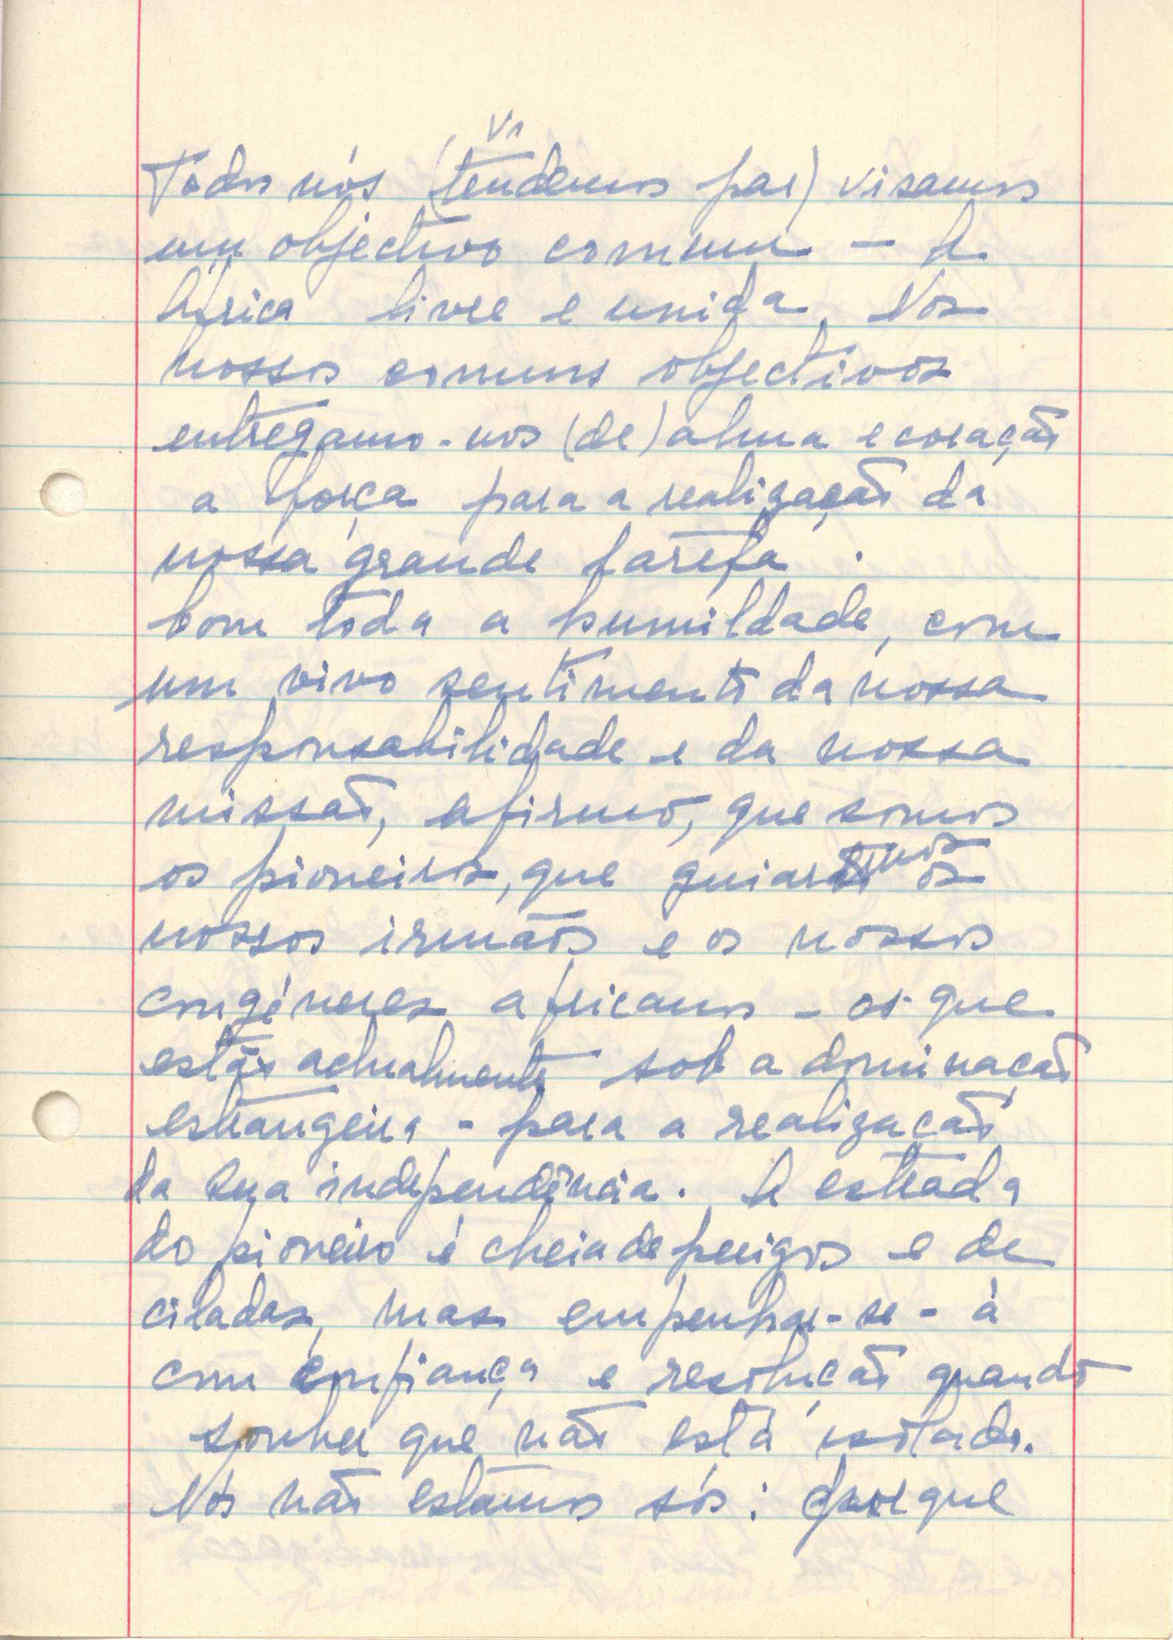 Vi
Todos nós (tendemos par) visamos
um objectivo comum — A
África livre e unida. Nos
nossos comuns objectivos
entregamo-nos (de) alma e coração
a força para a realização da
nossa grande tarefa.
Com toda a humildade, com
um vivo sentimento da nossa
responsabilidade e da nossa
missão, afirmo, que somos
os pioneiros, que guiaremos os
nossos irmãos e os nossos
congéneres africanos – os que
estão actualmente sob a dominação
estrangeira – para a realização
da sua independência. A estrada
do pioneiro é cheia de perigos e de
ciladas, mas empenhar-se-à
com confiança e resolução quando
souber que não está isolado.
Nós não estamos sós: porque